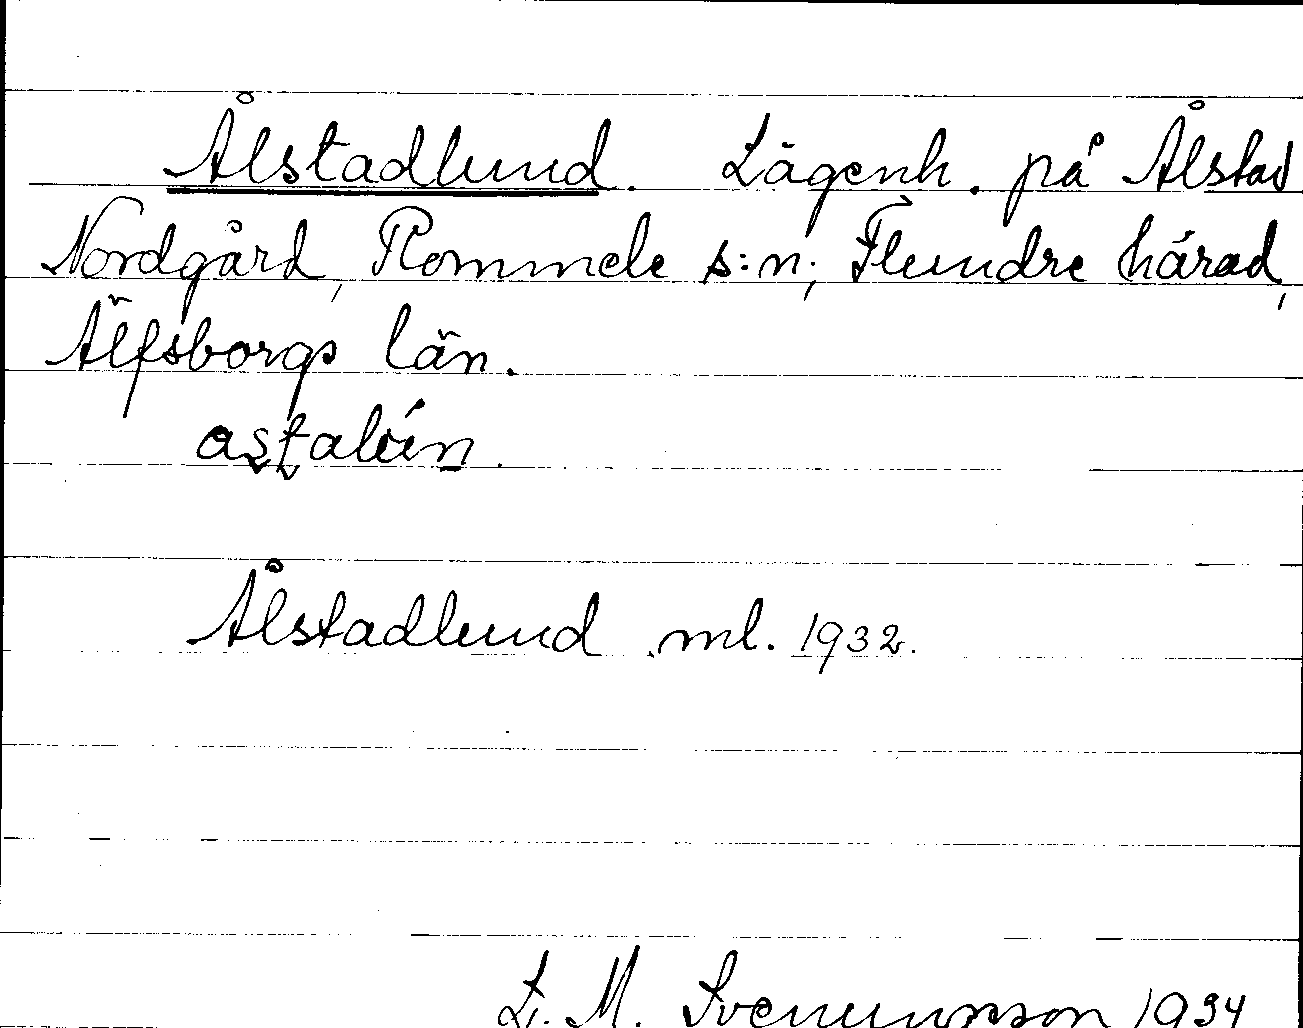 Ålstadlund. Lägenh. på Ålstad
Nordgård, Rommele s:n, Flundre härad,
Älfsborgs län.
astalún
Ålstadlund ml. 1932.
M. Svenungsson 1934